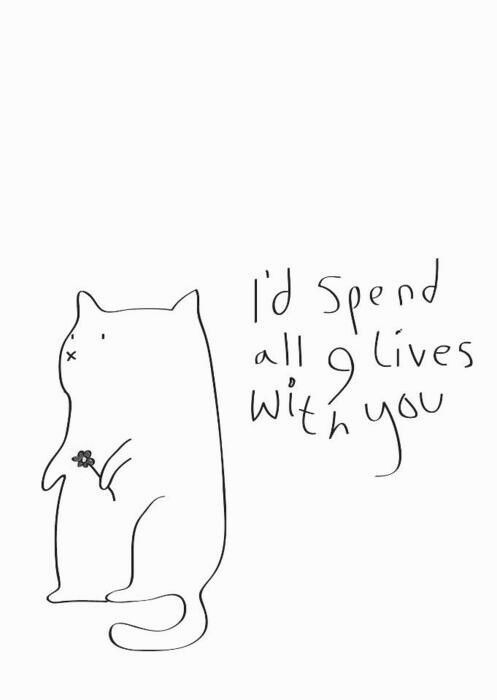 I'd Spend
all 9 lives
with you